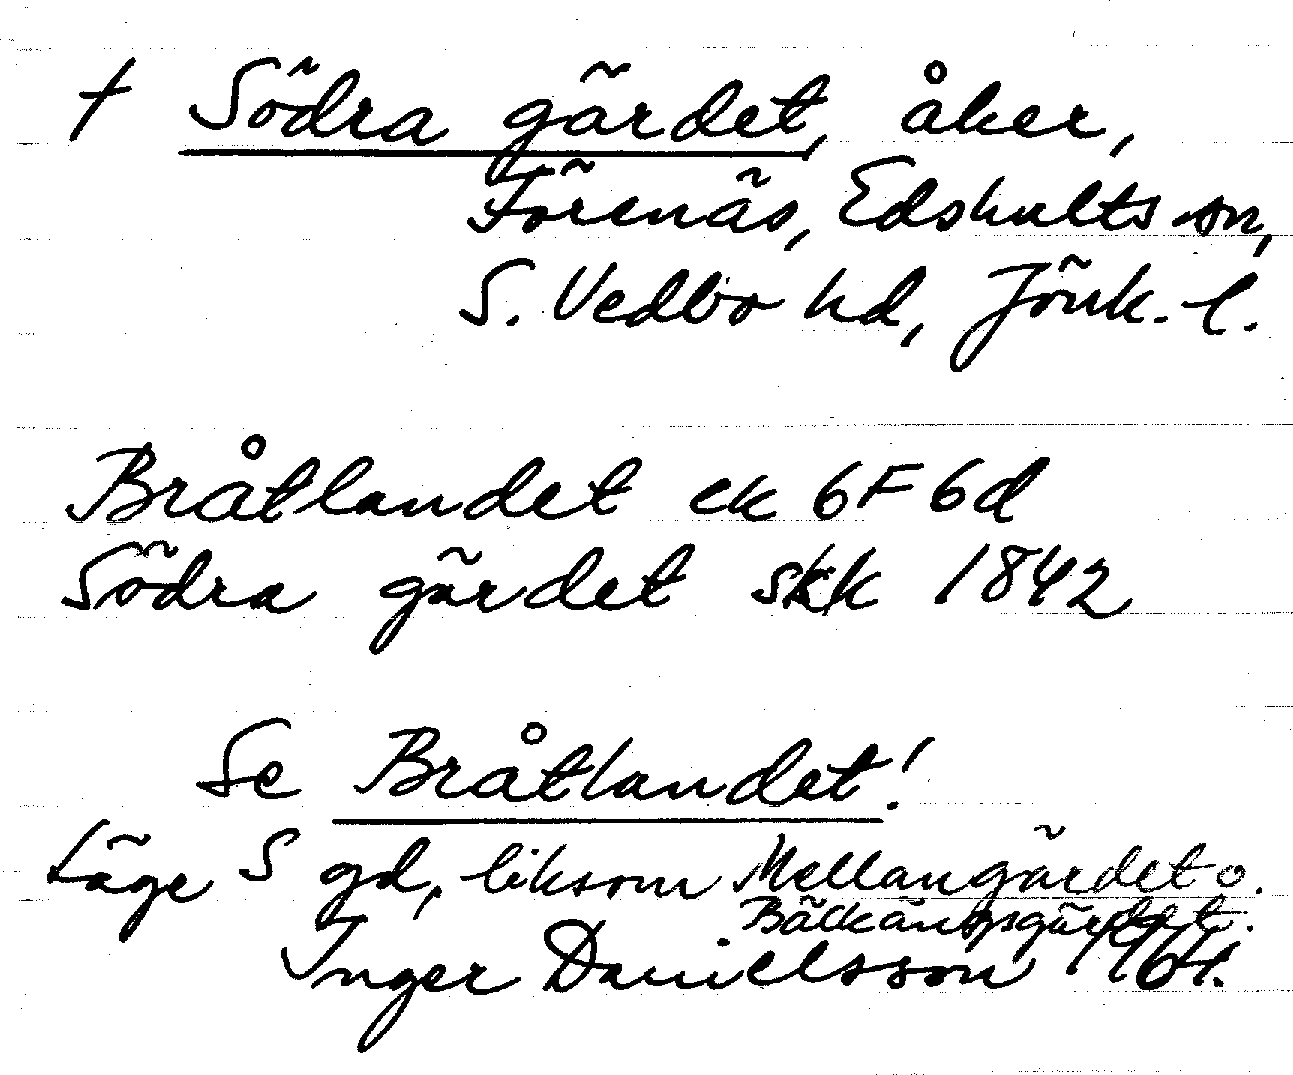 † Södra gärdet, åker,
Förenäs, Edshults sn,
S. Vedbo hd, Jönk. l.
Bråtlandet ek 6F6d
Södra gärdet skk 1842
Se Bråtlandet!
Läge S gd, liksom Mellangärdet o.
Bäckängsgärdet.
Inger Danielsson 1964.